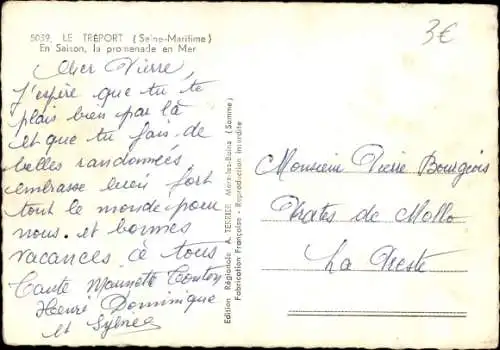 5039. LE TRÉPORT (Seine-Maritime)
En Saison, la promenade en Mer
3€
Cher Pierre
J'espère que tu te
plais bien par là
et que tu fais de
belles randonnées,
embrasse bien fort
tout le monde pour
nous. et bonnes
vacances à tous
Tante Maunette Tonton
Henri Dominique
et Sylvie
Edition Régionale A. TERRIER Mers-les-Bains (Somme)
Fabrication Française - Reproduction Interdite
Monsieur Pierre Bourgeois
Prates de Mollo
La Preste